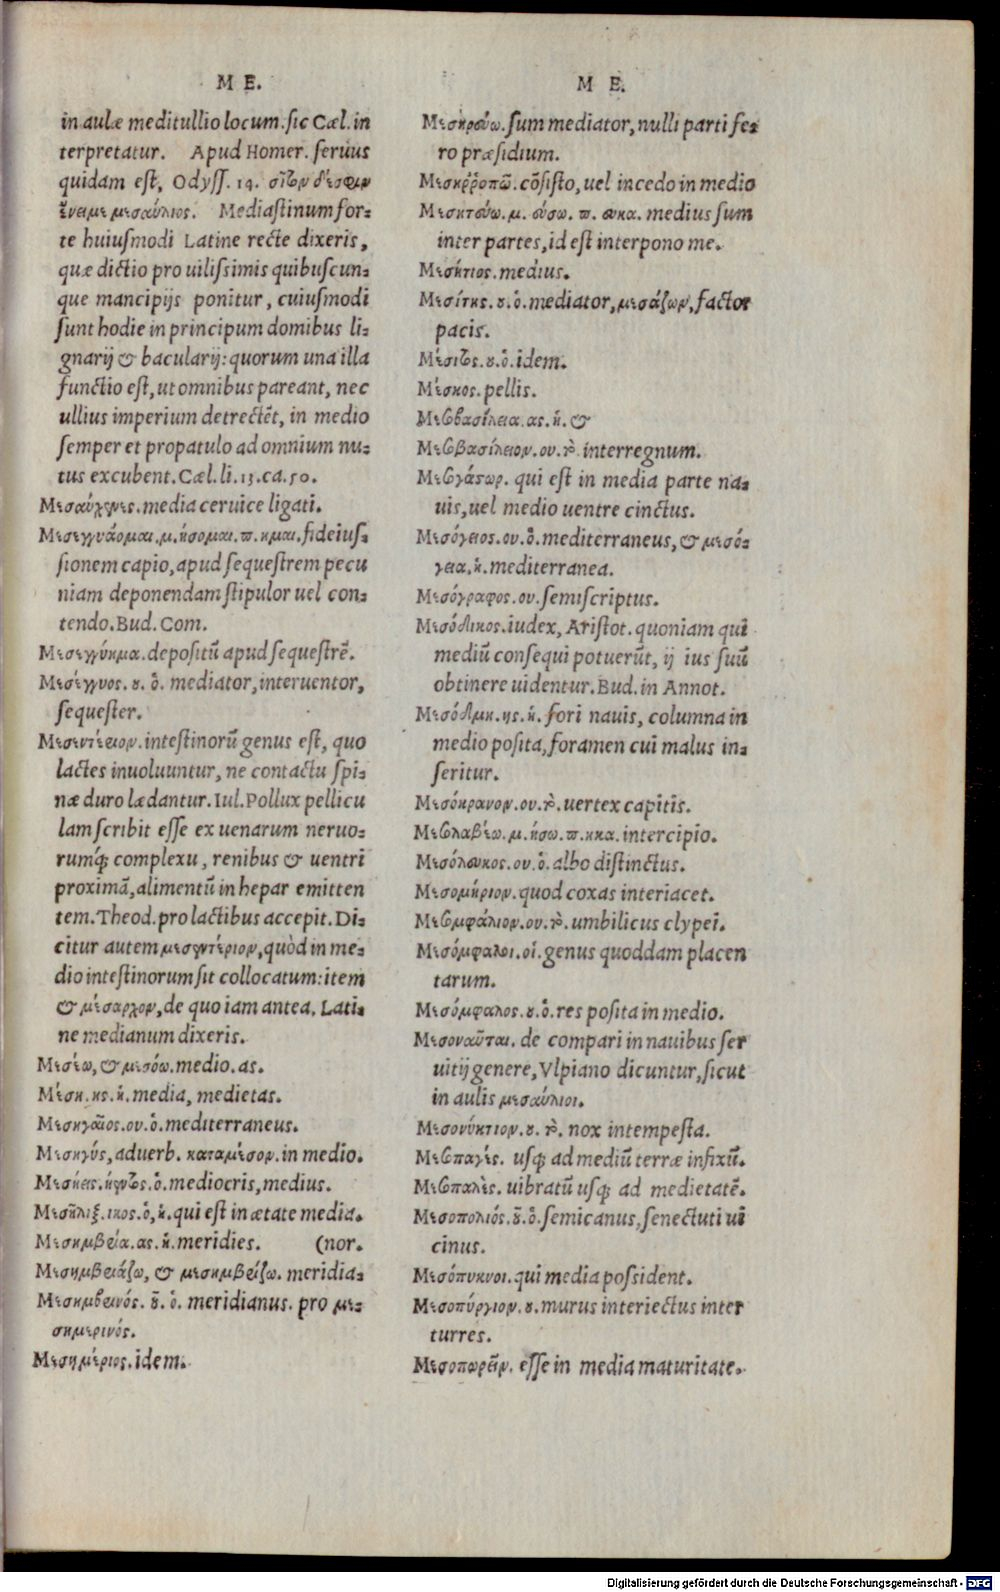 M E.
in aulæ meditullio locum. sic Cæl. in
terpretatur. Apud Homer. seruus
quidam est, Odyss. 14. σῖτον δέ σφιν
ἔνειμε μεσαύλιος. Mediastinum for-
te huiusmodi Latine recte dixeris,
quæ dictio pro uilissimis quibuscun-
que mancipijs ponitur, cuiusmodi
sunt hodie in principum domibus li-
gnarij & bacularij: quorum una illa
functio est, ut omnibus pareant, nec
ullius imperium detrectēt, in medio
semper et propatulo ad omnium nu-
tus excubent. Cæl. li. 13. ca. 50.
Μεσαύχενες. media ceruice ligati.
Μεσεγγυάομαι. μ. ήσομαι. π. ημαι. fideius-
sionem capio, apud sequestrem pecu
niam deponendam stipulor uel con-
tendo. Bud. Com.
Μεσεγγύημα. depositū apud sequestrē.
Μεσέγγυος. ου. ὁ. mediator, interuentor,
sequester.
Μεσεντέριον. intestinorū genus est, quo
lactes inuoluuntur, ne contactu spi-
næ duro lædantur. Iul. Pollux pellicu
lam scribit esse ex uenarum neruo-
rumq́; complexu, renibus & uentri
proximā, alimentū in hepar emitten
tem. Theod. pro lactibus accepit. Di-
citur autem μεσεντέριον, quòd in me-
dio intestinorum sit collocatum: item
& μέσαρχον, de quo iam antea. Lati-
ne medianum dixeris.
Μεσέω, & μεσόω. medio. as.
Μέση. ης. ἡ. media, medietas.
Μεσηγαῖος. ου. ὁ. mediterraneus.
Μεσηγύς, aduerb. καταμέσον. in medio.
Μεσήεις. ήεντος. ὁ. mediocris, medius.
Μεσῆλιξ. ικος. ὁ, ἡ. qui est in ætate media.
Μεσημβρία. ας. ἡ. meridies. (nor.
Μεσημβριάζω, & μεσημβρίζω. meridia-
Μεσημβρινός. οῦ. ὁ. meridianus. pro με-
σημερινός.
Μεσημέριος. idem.
M E.
Μεσηρεύω. sum mediator, nulli parti fe-
ro præsidium.
Μεσηῤῥοπῶ. cōsisto, uel incedo in medio
Μεσητεύω. μ. εύσω. π. ευκα. medius sum
inter partes, id est interpono me.
Μεσήτιος. medius.
Μεσίτης. ου. ὁ. mediator, μεσάζων, factor
pacis.
Μέσιτος. ου. ὁ. idem.
Μέσκος. pellis.
Μεσοβασίλεια. ας. ἡ. &
Μεσοβασίλειον. ου. τὸ. interregnum.
Μεσογάστωρ. qui est in media parte na-
uis, uel medio uentre cinctus.
Μεσόγειος. ου. ὁ. mediterraneus, & μεσό-
γεια. ἡ. mediterranea.
Μεσόγραφος. ου. semiscriptus.
Μεσόδικος. iudex, Aristot. quoniam qui
mediū consequi potuerūt, ij ius suū
obtinere uidentur. Bud. in Annot.
Μεσόδμη. ης. ἡ. fori nauis, columna in
medio posita, foramen cui malus in-
seritur.
Μεσόκρανον. ου. τὸ. uertex capitis.
Μεσολαβέω. μ. ήσω. π. ηκα. intercipio.
Μεσόλευκος. ου. ὁ. albo distinctus.
Μεσομήριον. quod coxas interiacet.
Μεσομφάλιον. ου. τὸ. umbilicus clypei.
Μεσόμφαλοι. οἱ. genus quoddam placen
tarum.
Μεσόμφαλος. ου. ὁ. res posita in medio.
Μεσοναῦται. de compari in nauibus ser
uitij genere, Vlpiano dicuntur, sicut
in aulis μεσαύλιοι.
Μεσονύκτιον. ου. τὸ. nox intempesta.
Μεσοπαγές. usq; ad mediū terræ infixū.
Μεσοπαλὲς. uibratū usq; ad medietatē.
Μεσοπολιός. οῦ. ὁ. semicanus, senectuti ui
cinus.
Μεσόπυκνοι. qui media possident.
Μεσοπύργιον. ου. murus interiectus inter
turres.
Μεσοπωρεῖν. esse in media maturitate.
Digitalisierung gefördert durch die Deutsche Forschungsgemeinschaft - DFG